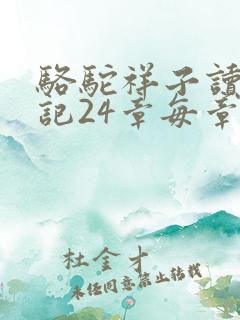 駱駝祥子讀
記24章每章
杜金才
未經同意禁止轉載